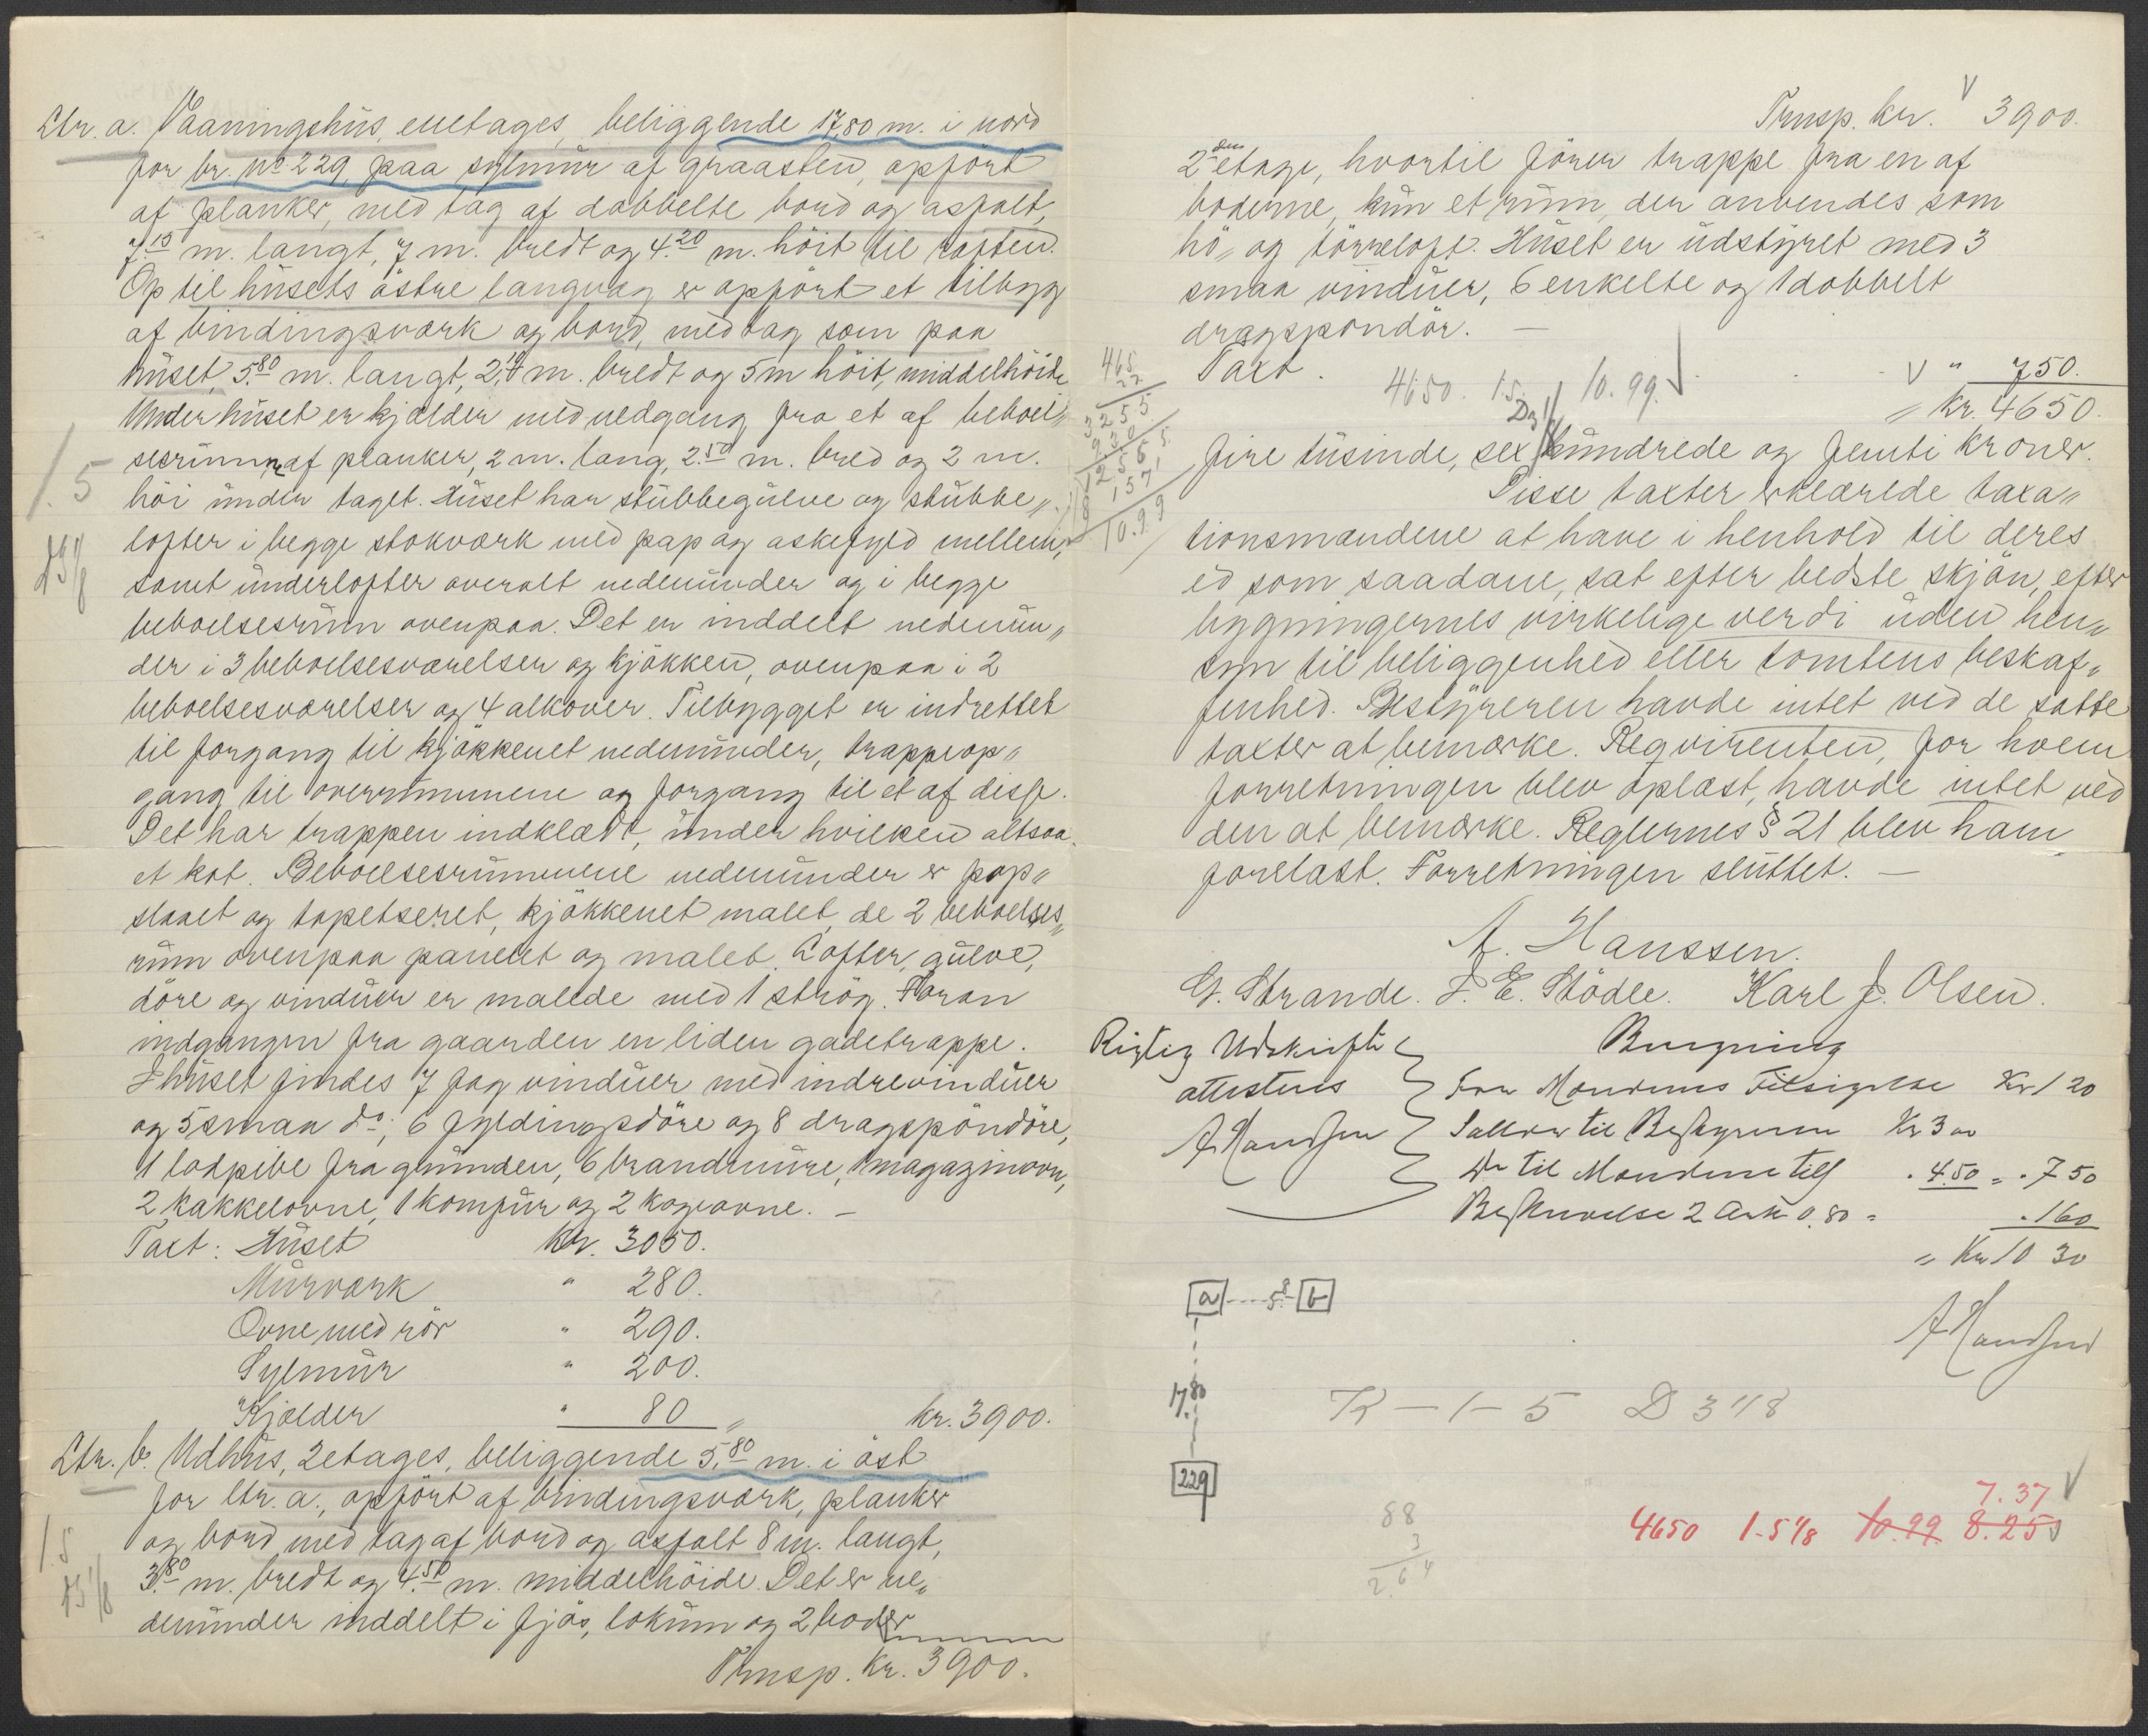 Ltr. a. Vaaningshus, enetages, beliggende 17,80 m. i nord
for br. no 229, paa sylmur af graasten, opført
af planker, med tag af dobbelte bord og asfalt,
7.15 m. langt, 7 m. bredt og 4.20 m. höit til raften.
Op til husets östre langvæg er opfört et tilbyg
af bindingsværk og bord, med tag som paa
huset, 5.80 m. langt, 2,10 m. bredt og 5 m höit, middelhöide
Under huset er kjælder med nedgang fra et af beboel„
sesrummene af planker, 2 m. lang, 2.50 m. bred og 2 m.
höi under taget. Huset har stubbegulve og stubbe„
lofter i begge stokværk med pap og askefyld mellem,
samt underlofter overalt nedenunder og i begge
beboelsesrum ovenpaa. Det er inddelt nedenun„
der i 3 beboelsesværelser og kjökken, ovenpaa i 2
beboelsesværelser og 4 alkover. Tilbygget er indrettet
til forgang til kjökkenet nedenunder, trappeop„
gang til overrummene og forgang til et af disse.
Det har trappen indklædt, under hvilken altsaa
et kot. Beboelsesrummene nedenunder er pap„
slaaet og tapetseret, kjökkenet malet, de 2 beboelses„
rum ovenpaa panelet og malet. Lofter, gulve,
döre og vinduer er malede med 1 strög. Foran
indgangen fra gaarden en liden gadetrappe.
I huset findes 7 fag vinduer med indrevinduer
og 5 smaa do; 6 fyldingsdöre og 8 dragspöndöre,
1 lodpibe fra grunden, 6 brandmure, 1 magazinovn,
2 kakkelovne, 1 komfur og 2 kogeovne. —
Taxt: Huset Kr. 3050.
Murværk " 280.
Ovne med rör " 290.
Sylmur " 200.
Kjælder " 80 „ kr. 3900.
Ltr. b. Udhus, 2etages, beliggende 5.80 m. i öst
for ltr. a., opfört af bindingsværk, planker
og bord med tag af bord og asfalt 8 m. langt,
3.80 m. bredt og 4.50 m. middelhöide. Det er ne„
denunder inddelt i fjös, lokum og 2 boder
Trnsp. Kr. 3900.
1.5
D3 1/8
1.5
D3 1/8
Trnsp. kr. 3900.
2den etage, hvortil förer trappe fra en af
boderne, kun et rum, der anvendes som
hö„ og törreloft. Huset er udstyret med 3
smaa vinduer, 6 enkelte og 1 dobbelt
dragspöndör. —
Taxt. " 750.
4650. 1.5. D3 1/8 10.99.
" Kr. 4650.
465
3255
930
12555
157
10.99
fire tusinde, sex hundrede og femti kroner.
Disse taxter erklærede taxa„
tionsmændene at have i henhold til deres
ed som saadane, sat efter bedste skjön, efter
bygningernes virkelige verdi uden hen„
syn til beliggenhed eller tomtens beskaf„
fenhed. Bestyreren havde intet ved de satte
taxter at bemærke. Reqvirenten, for hvem
forretningen blev oplæst, havde intet ved
den at bemærke. Reglernes § 21 blev ham
forelæst. Forretningen sluttet. —
A. Hanssen.
G. Strande. J. E. Stödle. Karl J. Olsen.
Rigtig Udskrift
attesteres
A Hanssen
Beregning
For Mændenes Tilsigelse Kr 1 20
Sallær til Bestyreren Kr 3 00
Do til Mændene till . 4.50 = . 7 50
Beskrivelse 2 Ark 0.80 = . 1 60
= Kr 10 30
A Hanssen
a 5.8 b
17.80
229
K – 1 – 5 D 3 1/8
88
3
2.64
7.37
4650 1-5 1/8 10.99 8.25